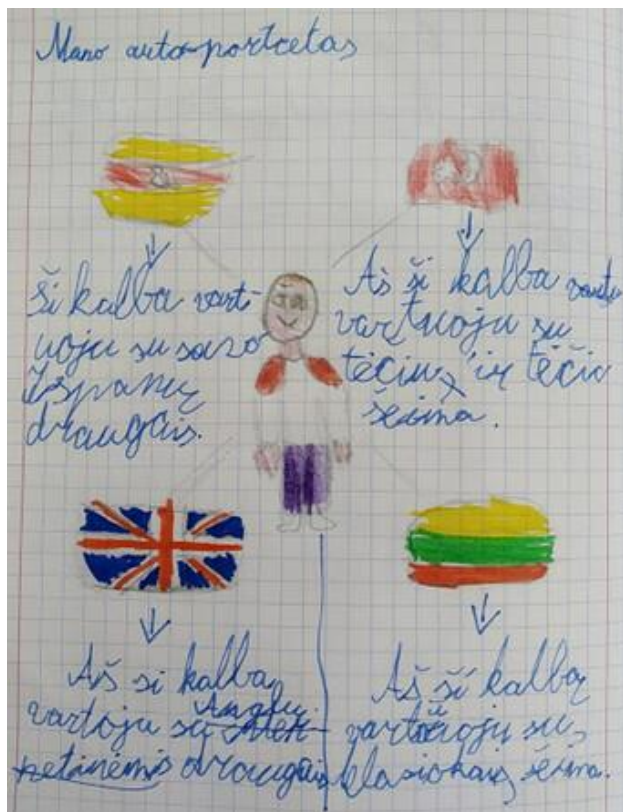 Mano autoportretas
Ši kalba varti-
uoju su savo
Ispanų
draugais.
Aš ši kalba
vartuoju su
tėčiu, ir tėčio
šeima.
Aš si kalba
Anglų
vartoju su
netinėmis draugais
Aš ší kalbą
vartuoju su
klasiokais, šeima.